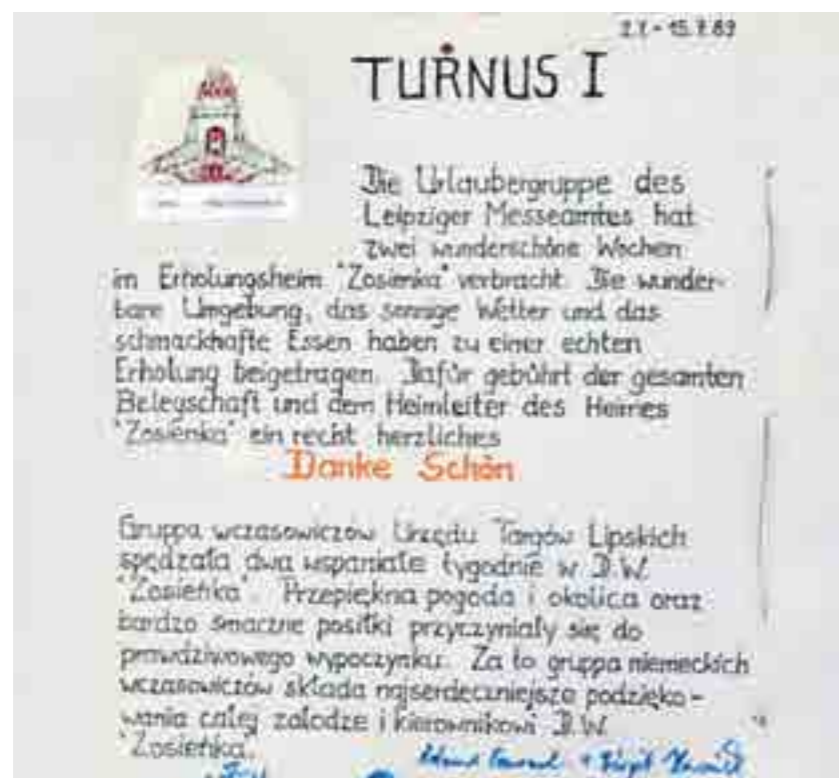 2.7. - 15.7.89
TURNUS I
Die Urlaubergruppe des
Leipziger Messeamtes hat
zwei wunderschöne Wochen
im Erholungsheim "Zosieńka" verbracht. Die wunder-
bare Umgebung, das sonnige Wetter und das
schmackhafte Essen haben zu einer echten
Erholung beigetragen. Dafür gebührt der gesamten
Belegschaft und dem Heimleiter des Heimes
"Zosieńka" ein recht herzliches
Danke Schön
Gruppa wczasowiczów Urzędu Targów Lipskich
spędzała dwa wspaniałe tygodnie w D.W.
"Zosieńka". Przepiękna pogoda i okolica oraz
bardzo smaczne posiłki przyczyniały się do
prawdziwowego wypoczynku. Za to gruppa niemeckich
wczasowiczów składa najserdeczniejsze podzięko-
wania całej załodze i kierownikowi D.W.
"Zosieńka".